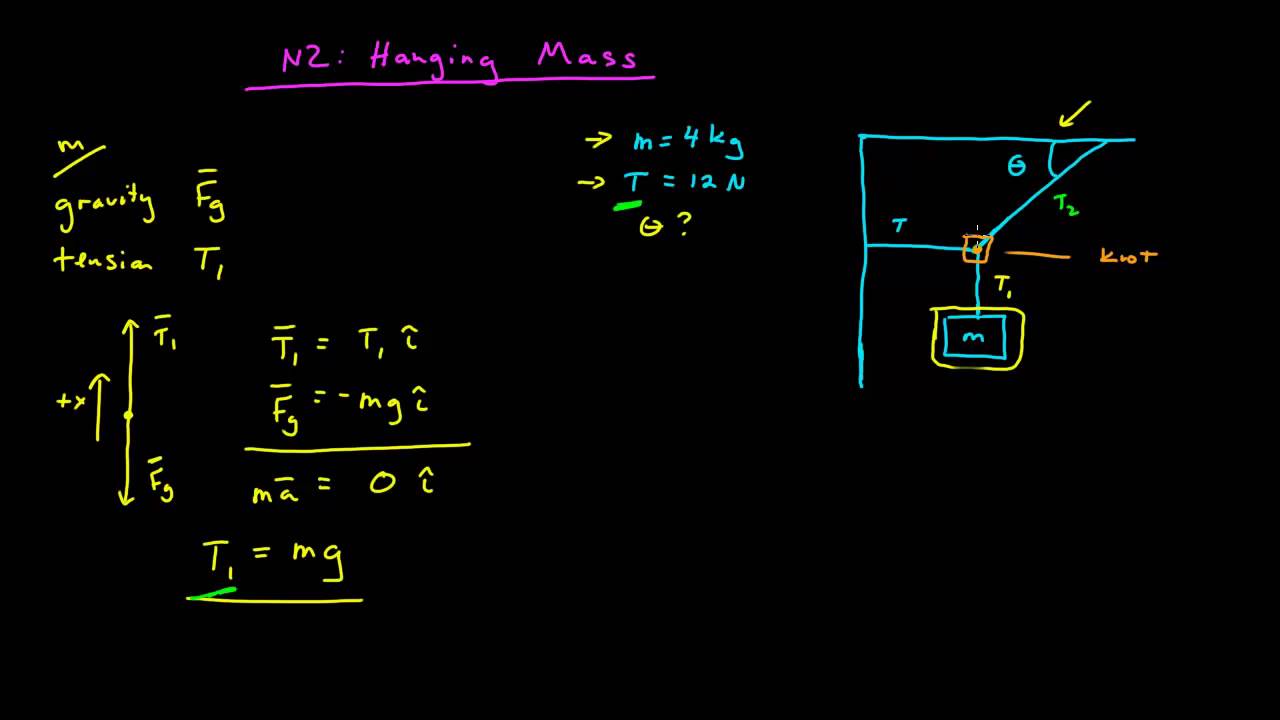 N2: Hanging Mass
m
gravity F̅g
tension T₁
T̅₁
+x
F̅g
T̅₁ = T₁ î
F̅g = -mg î
m a̅ = 0 î
T₁ = mg
→ m = 4 kg
→ T = 12 N
θ ?
θ
T₂
T
knot
T₁
m